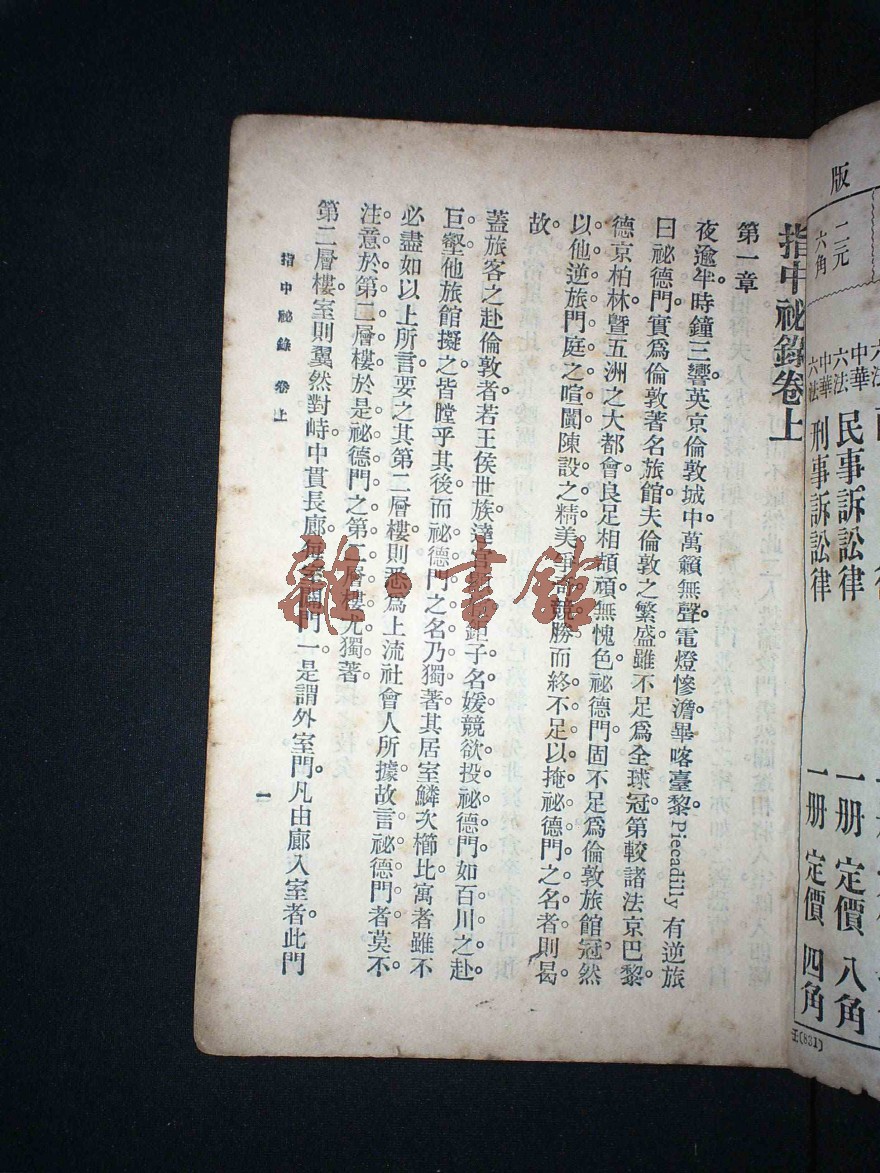 指中祕錄卷上
第一章
夜逾半時鐘三響英京倫敦城中萬籟無聲電燈慘澹畢喀臺黎Piecadilly有逆旅
曰祕德門實爲倫敦著名旅館夫倫敦之繁盛雖不足爲全球冠第較諸法京巴黎
德京柏林暨五洲之大都會良足相頡頏無愧色祕德門固不足爲倫敦旅館冠然
以他逆旅門庭之喧闐陳設之精美爭奇競勝而終不足以掩祕德門之名者則曷
故
蓋旅客之赴倫敦者若王侯世族達官 鉅子名媛競欲投祕德門如百川之赴
巨壑他旅館擬之皆瞠乎其後而祕德門之名乃獨著其居室鱗次櫛比寓者雖不
必盡如以上所言要之其第二層樓則悉爲上流社會人所據故言祕德門者莫不
注意於第二層樓於是祕德門之第二層樓尤獨著
第二層樓室則翼然對峙中貫長廊每室闢門一是謂外室門凡由廊入室者此門
指中祕錄 卷上
一
版
二元
六角
中華六法 民事訴訟律 一册 定價 八角
中華六法 刑事訴訟律 一册 定價 四角
(831)
雜·書館